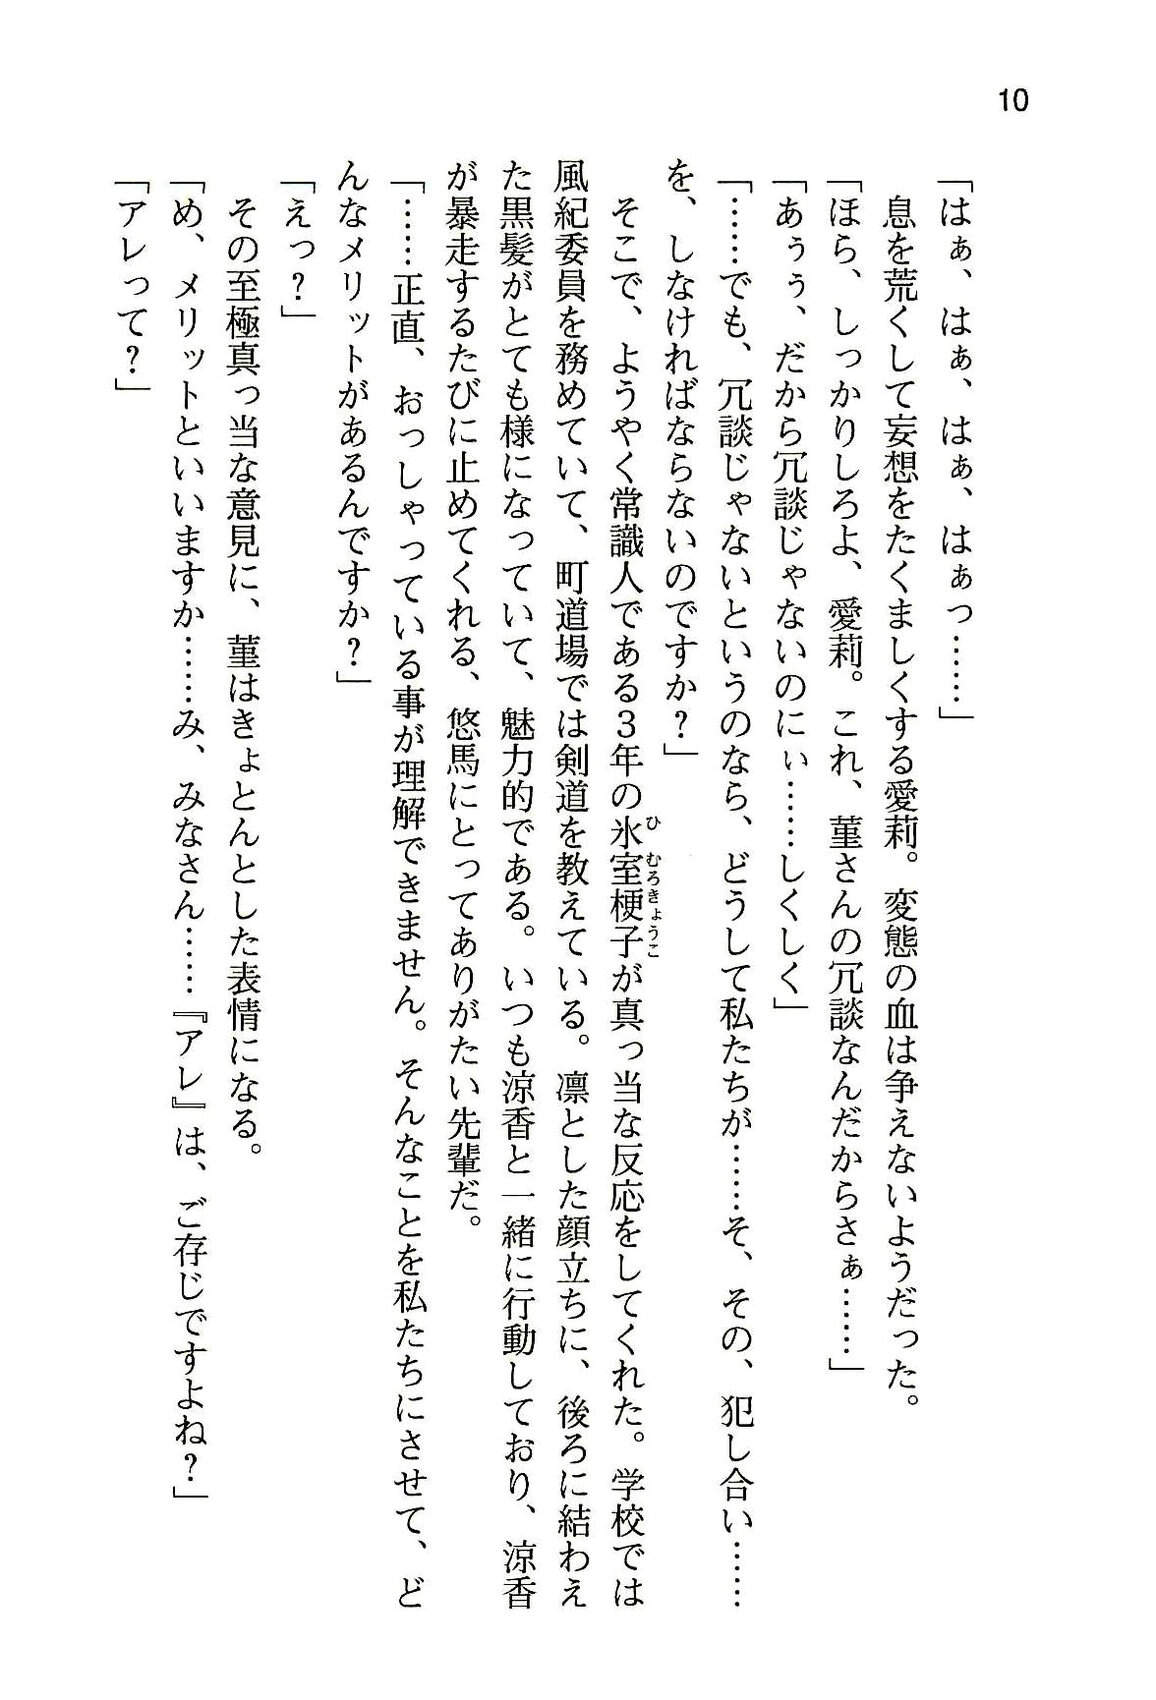 10
「はぁ、はぁ、はぁ、はぁっ……」
息を荒くして妄想をたくましくする愛莉。変態の血は争えないようだった。
「ほら、しっかりしろよ、愛莉。これ、菫さんの冗談なんだからさぁ……」
「あぅぅ、だから冗談じゃないのにぃ……しくしく」
「……でも、冗談じゃないというのなら、どうして私たちが……そ、その、犯し合い……
を、しなければならないのですか？」
そこで、ようやく常識人である３年の氷室梗子が真っ当な反応をしてくれた。学校では
風紀委員を務めていて、町道場では剣道を教えている。凛とした顔立ちに、後ろに結わえ
た黒髪がとても様になっていて、魅力的である。いつも涼香と一緒に行動しており、涼香
が暴走するたびに止めてくれる、悠馬にとってありがたい先輩だ。
「……正直、おっしゃっている事が理解できません。そんなことを私たちにさせて、ど
んなメリットがあるんですか？」
「えっ？」
その至極真っ当な意見に、菫はきょとんとした表情になる。
「め、メリットといいますか……み、みなさん……『アレ』は、ご存じですよね？」
「アレって？」
ひ むろきょうこ